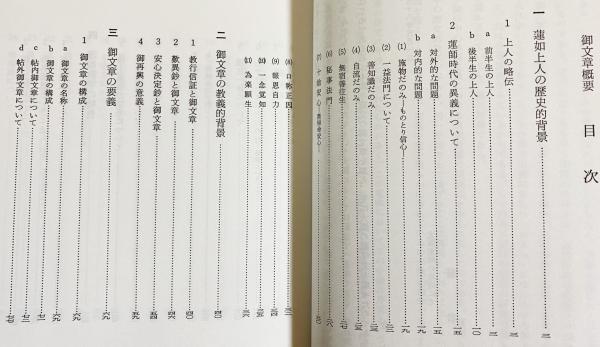 御文章概要
目次
一 蓮如上人の歴史的背景……三
1 上人の略伝……三
a 前半生の上人……三
b 後半生の上人……一〇
2 蓮師時代の異義について……一五
a 対外的な問題……一五
b 対内的な問題……一九
⑴ 施物だのみ―ものとり信心……一九
⑵ 一益法門について……二二
⑶ 善知識だのみ……二三
⑷ 自流だのみ……二五
⑸ 無宿善往生……二七
⑹ 秘事法門……二八
⑺ 十劫安心
⑻ 口称正因
⑼ 報恩自力……三四
⑽ 一念覚知……三五
⑾ 為楽願生……三六
二 御文章の教義的背景……四〇
1 教行信証と御文章……四〇
2 歎異鈔と御文章……四六
3 安心決定鈔と御文章……五四
4 御再興の意義……五九
三 御文章の要義……六九
1 御文章の構成……六九
a 御文章の名称……六九
b 御文章の構成……六九
c 帖内御文章について……七二
d 帖外御文章について……七〇